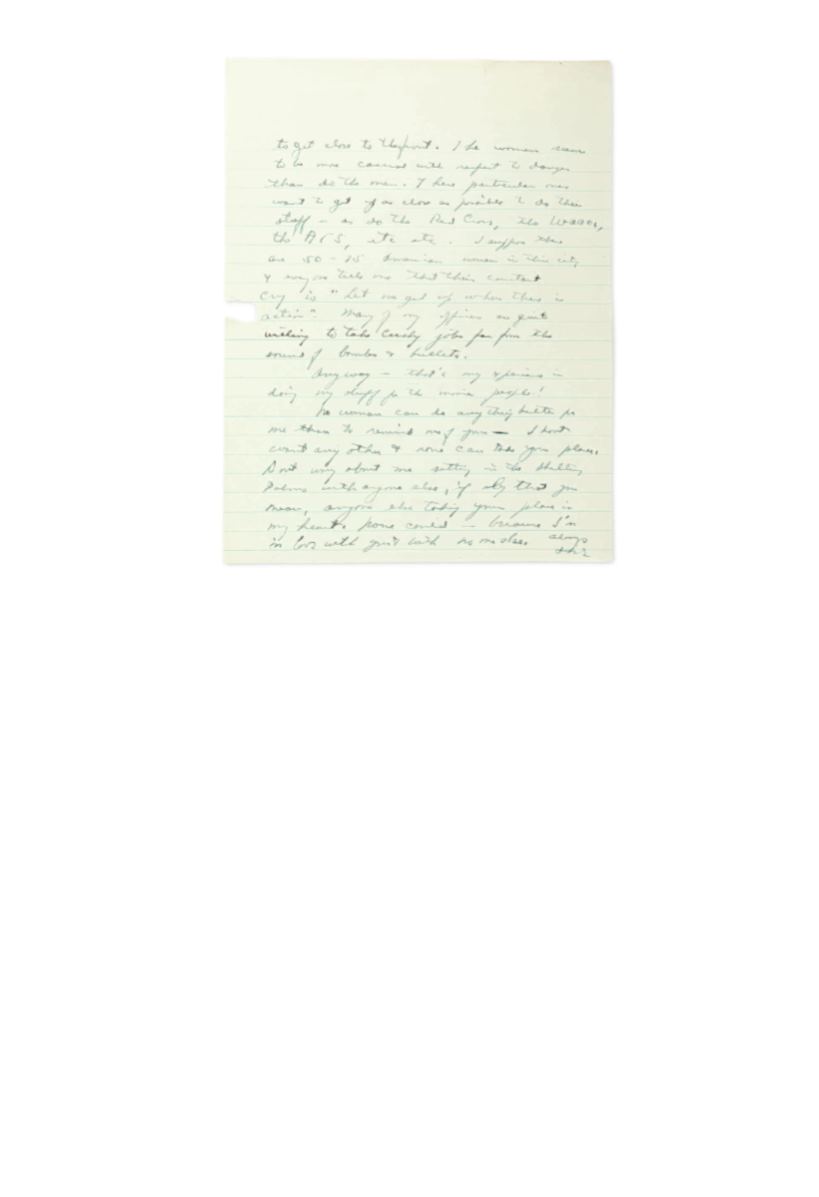 to get close to the front. The women seem
to be more casual with respect to danger
than do the men. These particular ones
want to get up as close as possible to do their
stuff - as do the Red Cross, the Waacs,
the ATS, etc etc. I suppose there
are 50-75 American women in this city
& everyone tells me that their constant
cry is "Let me get up where there is
action". Many of my officers are quite
willing to take cushy jobs far from the
sound of bombs & bullets.
Anyway - that's my experience in
doing my stuff for the movie people!
No woman can do anything better for
me than to remind me of you — I don't
want any other & none can take your place.
Dont worry about me sitting in the
Palms with anyone else, if by that you
mean, anyone else taking your place in
my heart. None could - because I'm
in love with you & with no one else. always